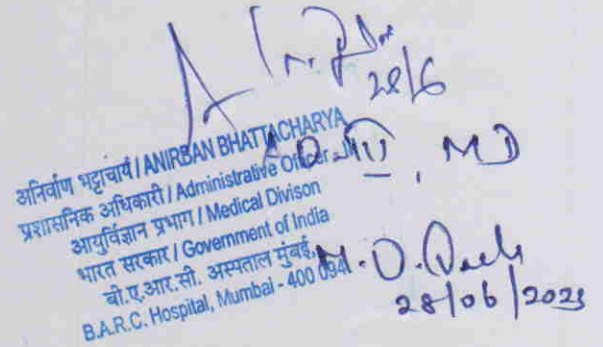 28/6
अनिर्वाण भट्टाचार्य / ANIRBAN BHATTACHARYA
प्रशासनिक अधिकारी / Administrative Officer - III
A.O. III, MD
आयुर्विज्ञान प्रभाग / Medical Divison
भारत सरकार / Government of India
बी.ए.आर.सी. अस्पताल मुंबई,
B.A.R.C. Hospital, Mumbai - 400 094
28/06/2023